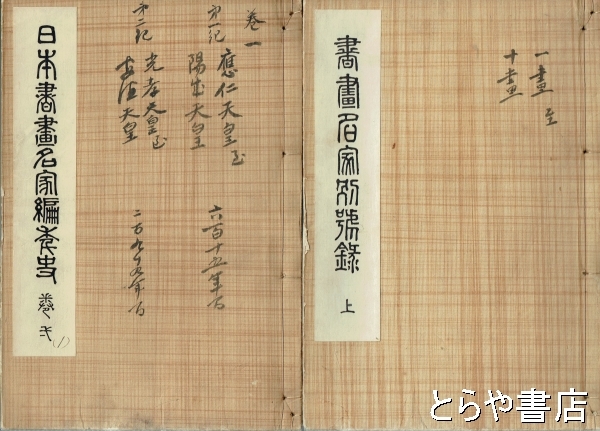 書畫名家別號錄
上
一畫 至
十畫
日本書畫名家編年史
巻弌
(1)
巻一
第一記 應仁天皇至
陽成天皇
六百十五年間
第二記 光孝天皇至
安徳天皇
とらや書店